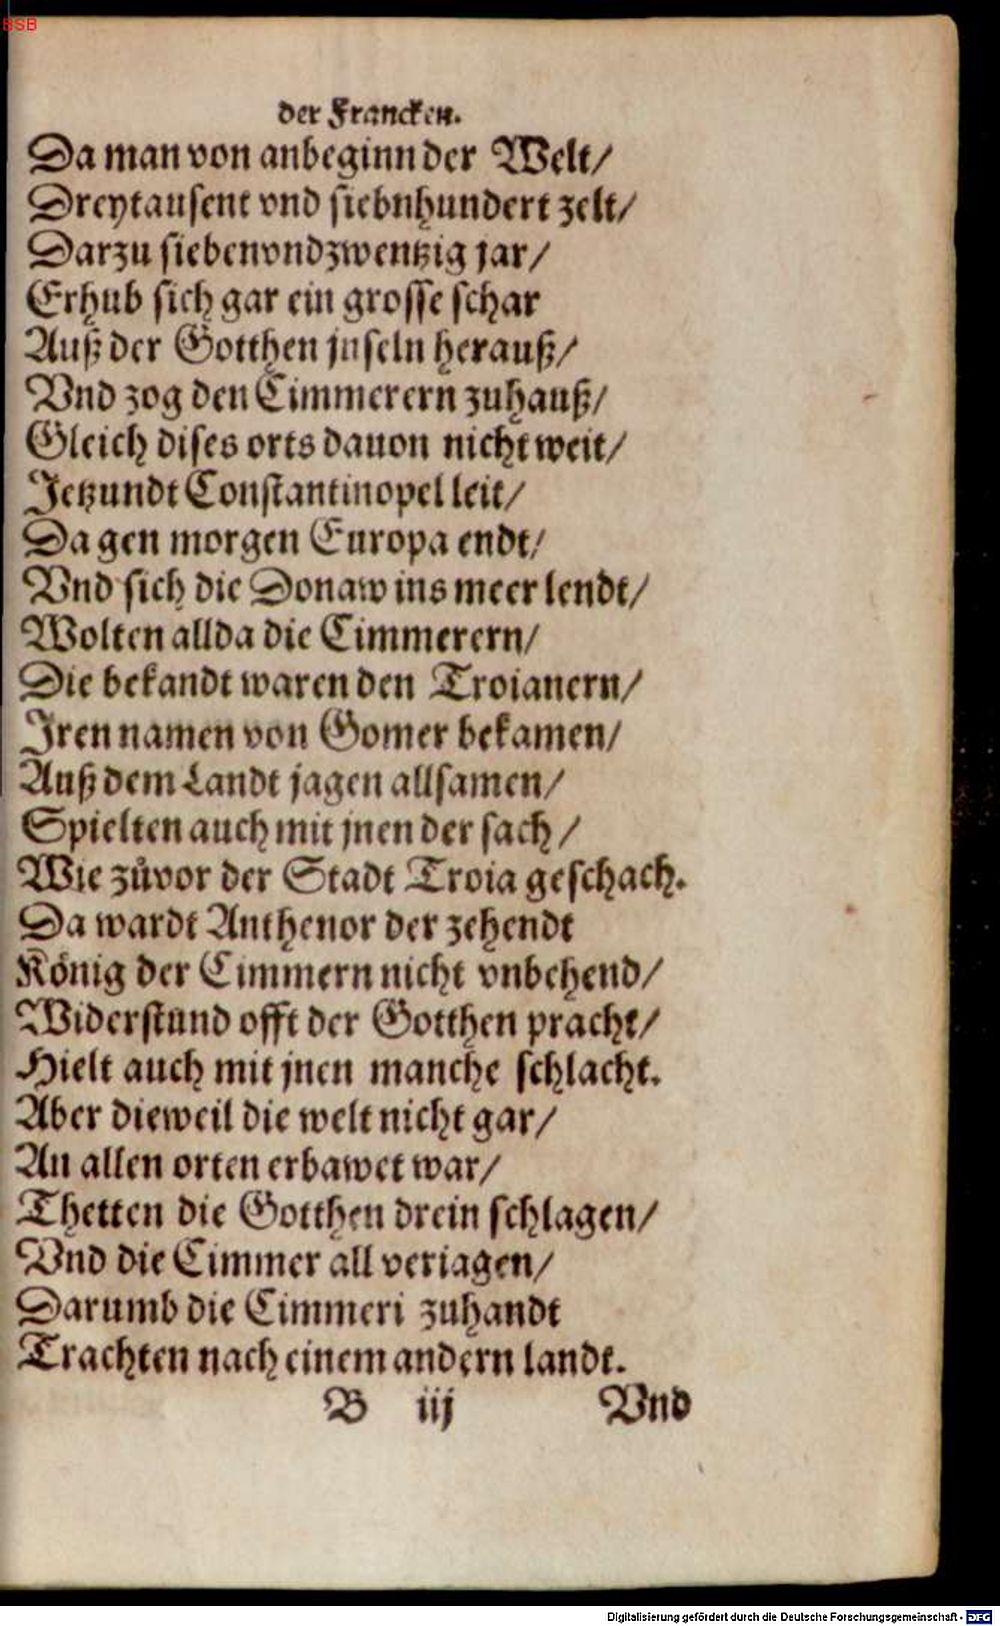 BSB
der Francken.
Da man von anbeginn der Welt/
Dreytausent vnd siebnhundert zelt/
Darzu siebenvndzwentzig jar/
Erhub sich gar ein grosse schar
Auß der Gotthen jnseln herauß/
Vnd zog den Cimmerern zuhauß/
Gleich dises orts dauon nicht weit/
Jetzundt Constantinopel leit/
Da gen morgen Europa endt/
Vnd sich die Donaw ins meer lendt/
Wolten allda die Cimmerern/
Die bekandt waren den Troianern/
Jren namen von Gomer bekamen/
Auß dem Landt jagen allsamen/
Spielten auch mit jnen der sach/
Wie zůvor der Stadt Troia geschach.
Da wardt Anthenor der zehendt
König der Cimmern nicht vnbehend/
Widerstund offt der Gotthen pracht/
Hielt auch mit jnen manche schlacht.
Aber dieweil die welt nicht gar/
An allen orten erbawet war/
Thetten die Gotthen drein schlagen/
Vnd die Cimmer all veriagen/
Darumb die Cimmeri zuhandt
Trachten nach einem andern landt.
B iij Vnd
Digitalisierung gefördert durch die Deutsche Forschungsgemeinschaft - DFG